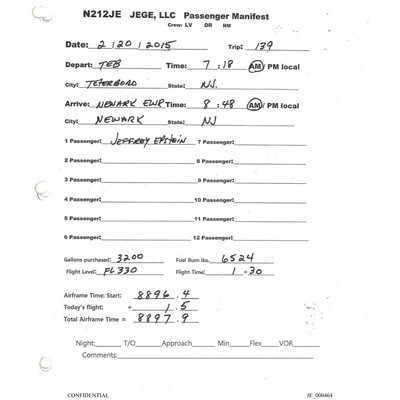 N212JE JEGE, LLC Passenger Manifest
Crew: LV DR NM
Date: 2 / 20 / 2015 Trip: 139
Depart: TEB Time: 7 : 18 AM / PM local
City: TETERBORO State: NJ.
Arrive: NEWARK EWR Time: 8 : 48 AM / PM local
City: NEWARK State: NJ
1 Passenger: JEFFREY EPSTEIN 7 Passenger:
2 Passenger: 8 Passenger:
3 Passenger: 9 Passenger:
4 Passenger: 10 Passenger:
5 Passenger: 11 Passenger:
6 Passenger: 12 Passenger:
Gallons purchased: 3200 Fuel Burn lbs. 6524
Flight Level: FL330 Flight Time: 1 + 30
Airframe Time: Start: 8896.4
Today's flight: + 1.5
Total Airframe Time = 8897.9
Night: T/O Approach Min Flex VOR
Comments:
CONFIDENTIAL JE_000464